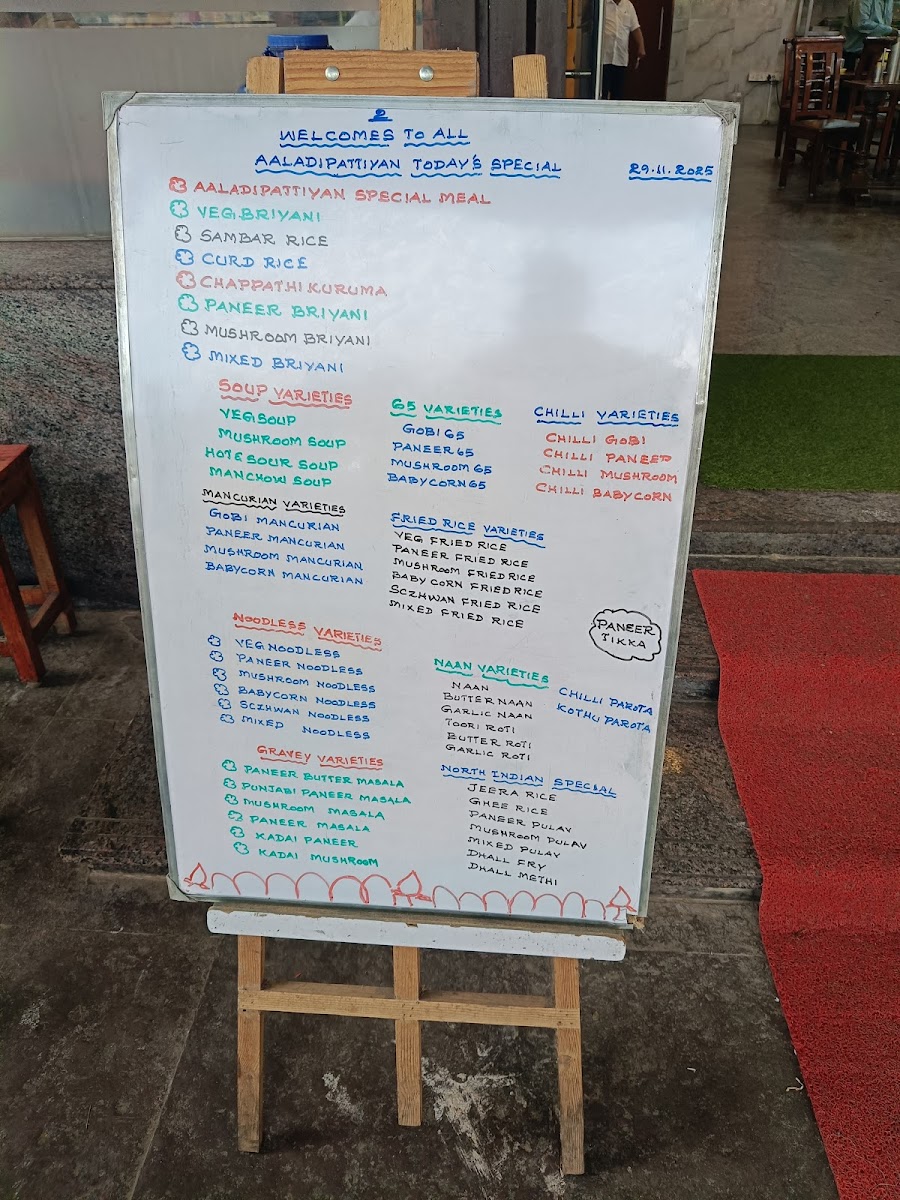 உ
WELCOMES TO ALL
AALADIPATTIYAN TODAY'S SPECIAL
29.11.2025
AALADIPATTIYAN SPECIAL MEAL
VEG.BRIYANI
SAMBAR RICE
CURD RICE
CHAPPATHI KURUMA
PANEER BRIYANI
MUSHROOM BRIYANI
MIXED BRIYANI
SOUP VARIETIES
VEG SOUP
MUSHROOM SOUP
HOT & SOUR SOUP
MANCHOW SOUP
65 VARIETIES
GOBI 65
PANEER 65
MUSHROOM 65
BABYCORN 65
CHILLI VARIETIES
CHILLI GOBI
CHILLI PANEER
CHILLI MUSHROOM
CHILLI BABYCORN
MANCURIAN VARIETIES
GOBI MANCURIAN
PANEER MANCURIAN
MUSHROOM MANCURIAN
BABYCORN MANCURIAN
FRIED RICE VARIETIES
VEG FRIED RICE
PANEER FRIED RICE
MUSHROOM FRIED RICE
BABY CORN FRIED RICE
SCZHWAN FRIED RICE
MIXED FRIED RICE
PANEER
TIKKA
NOODLESS VARIETIES
VEG NOODLESS
PANEER NOODLESS
MUSHROOM NOODLESS
BABYCORN NOODLESS
SCZHWAN NOODLESS
MIXED NOODLESS
NAAN VARIETIES
NAAN
BUTTER NAAN
GARLIC NAAN
TOORI ROTI
BUTTER ROTI
GARLIC ROTI
CHILLI PAROTA
KOTHU PAROTA
GRAVEY VARIETIES
PANEER BUTTER MASALA
PUNJABI PANEER MASALA
MUSHROOM MASALA
PANEER MASALA
KADAI PANEER
KADAI MUSHROOM
NORTH INDIAN SPECIAL
JEERA RICE
GHEE RICE
PANEER PULAV
MUSHROOM PULAV
MIXED PULAV
DHALL FRY
DHALL METHI